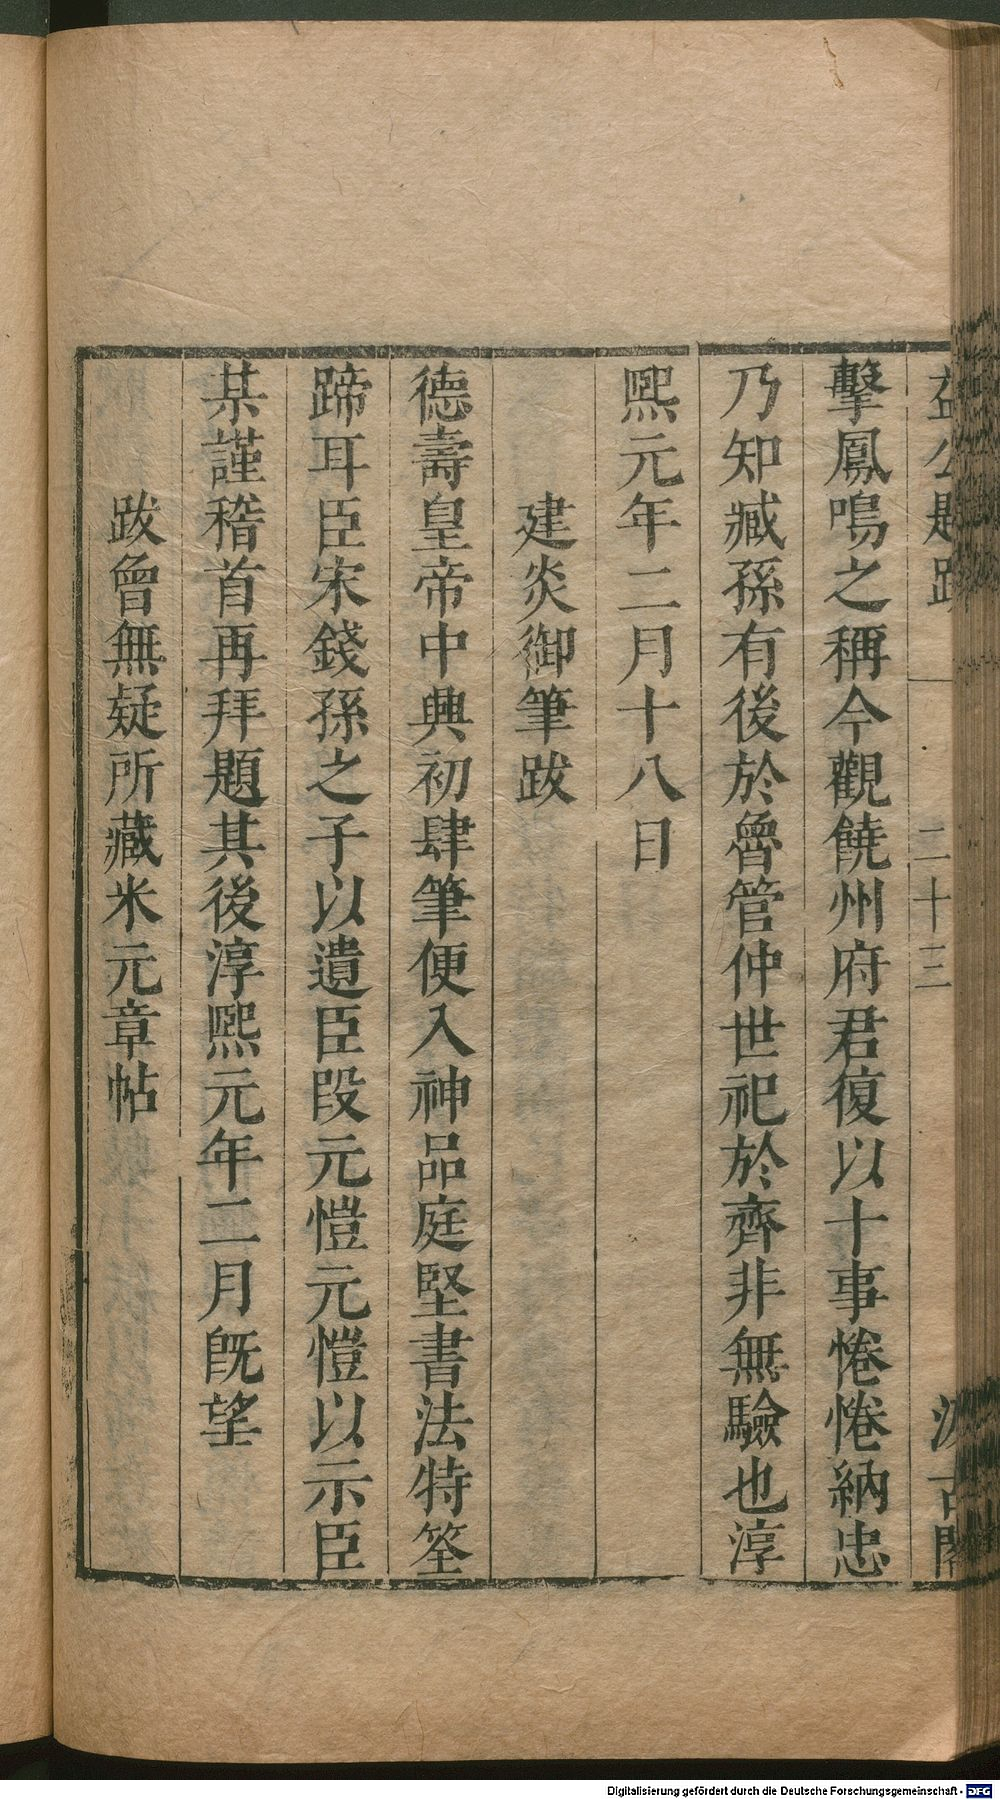 益公題跋 二十三 汲古閣
擊鳳鳴之稱今觀饒州府君復以十事惓惓納忠
乃知臧孫有後於魯管仲世祀於齊非無驗也淳
熙元年二月十八日
建炎御筆跋
德壽皇帝中興初肆筆便入神品庭堅書法特筌
蹄耳臣宋錢孫之子以遺臣段元愷元愷以示臣
某謹稽首再拜題其後淳熙元年二月旣望
跋曾無疑所藏米元章帖
Digitalisierung gefördert durch die Deutsche Forschungsgemeinschaft - DFG